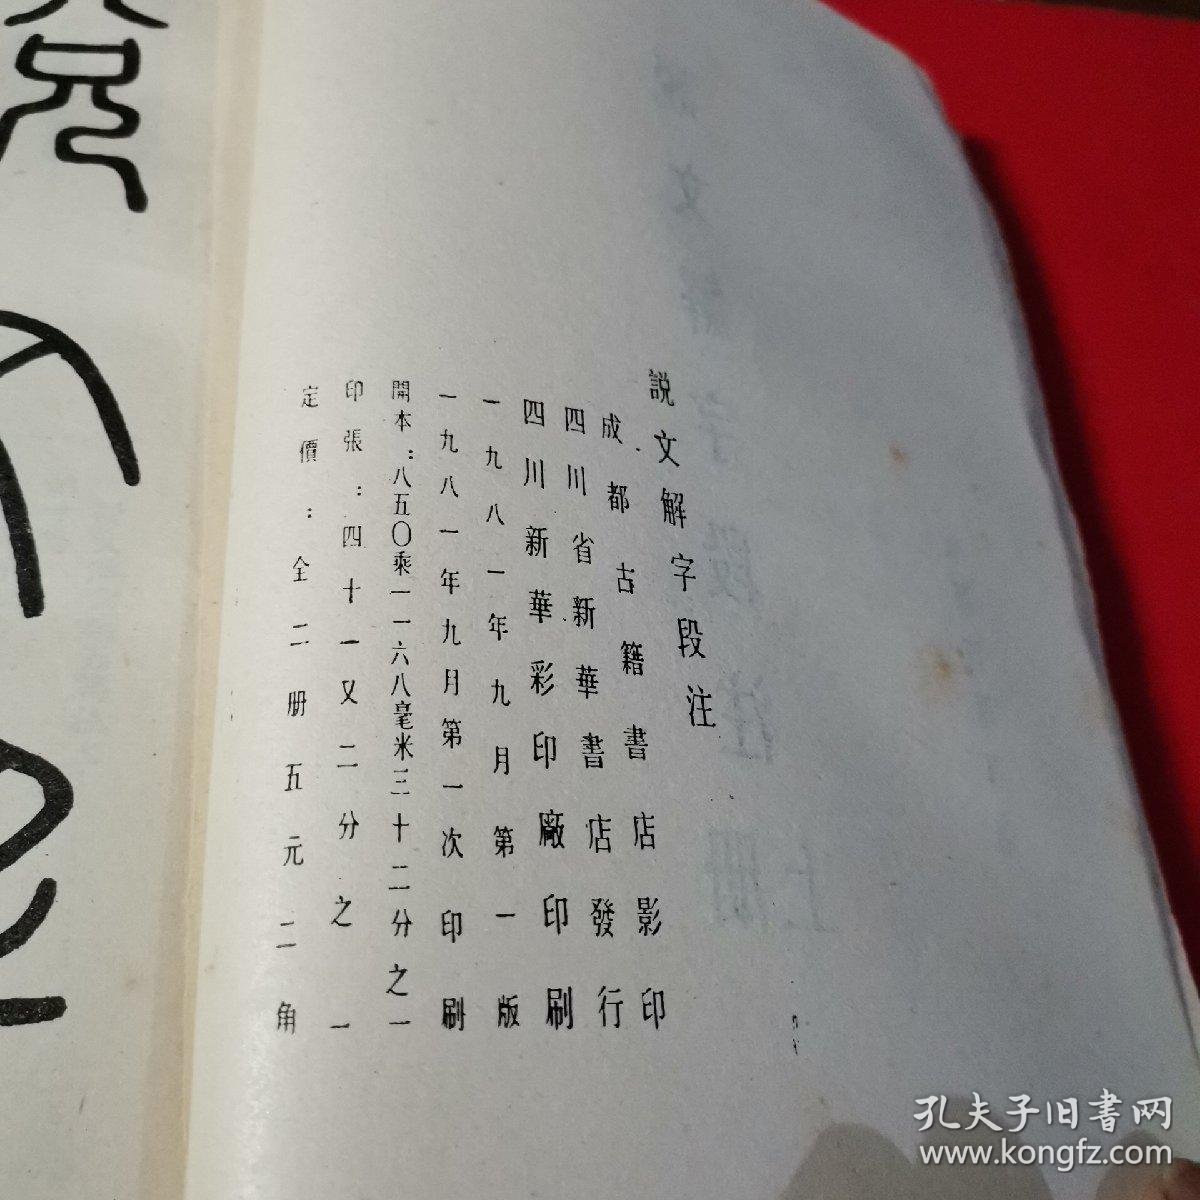 説文解字段注
成都古籍書店影印
四川省新華書店發行
四川新華彩印廠印刷
一九八一年九月第一版
一九八一年九月第一次印刷
開本：八五〇乘一一六八毫米三十二分之一
印張：四十一又二分之一
定價：全二册五元二角
孔夫子旧書网
www.kongfz.com